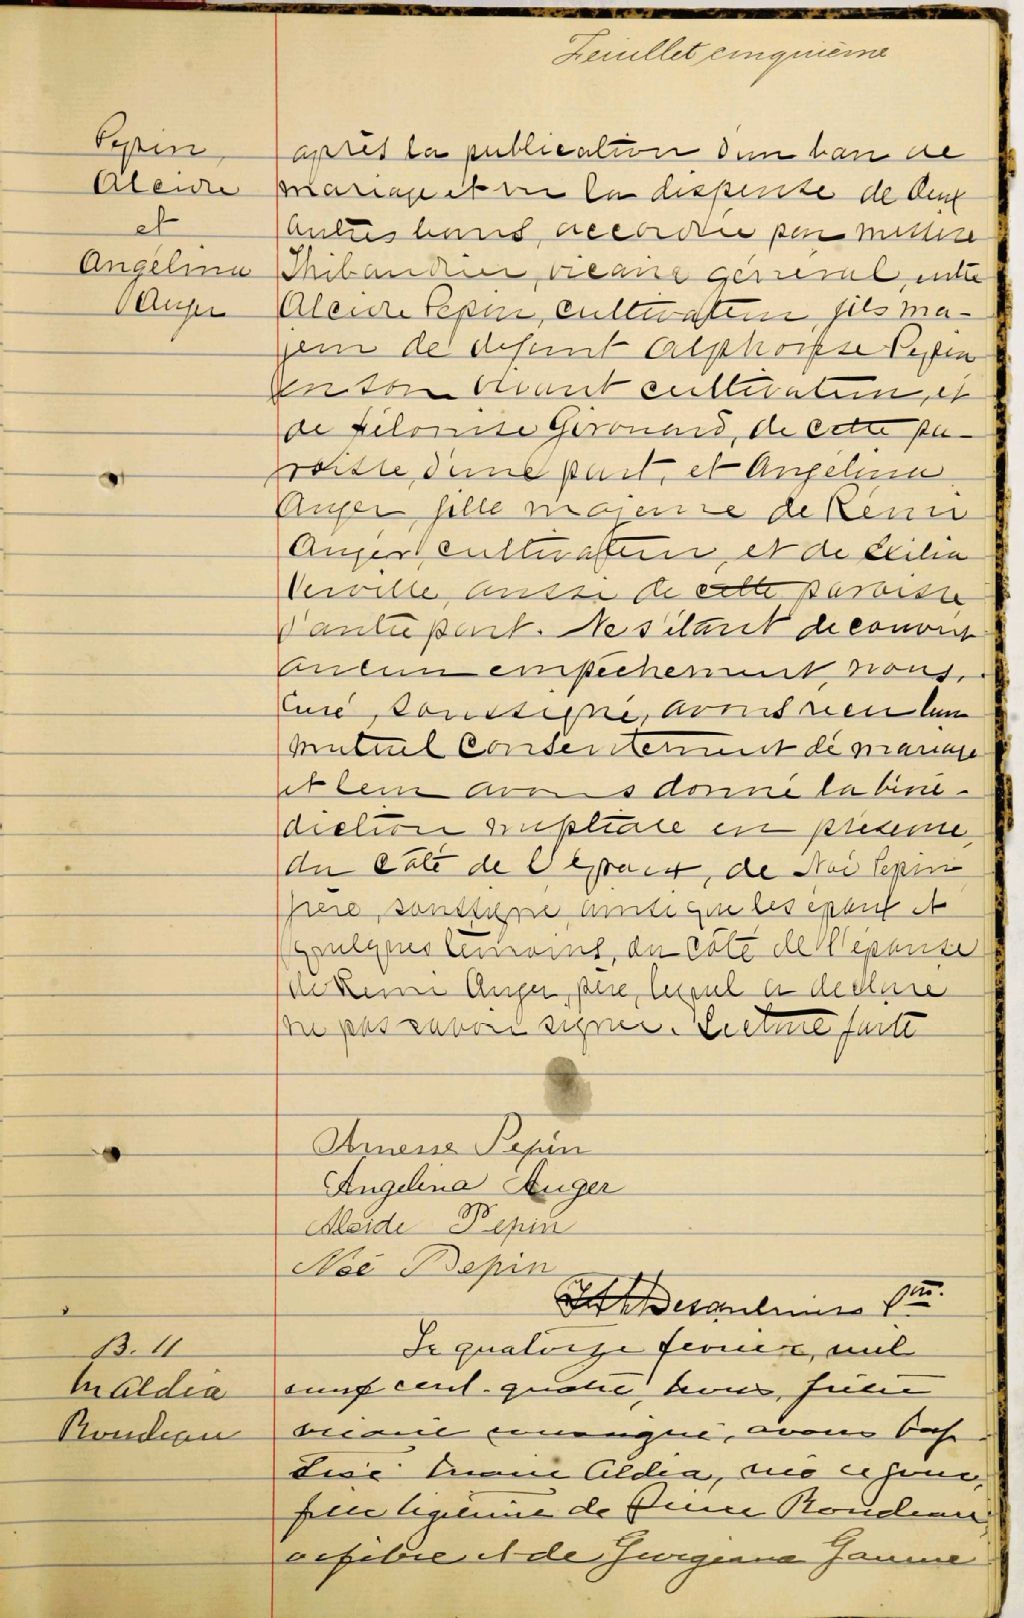 Feuillet cinquième
Pepin,
Alcide
et
Angélina
Auger
après la publication d'un ban de
mariage et vu la dispense de deux
autres bans, accordée par messire
Thibaudier, vicaire général, entre
Alcide Pepin, cultivateur, fils ma-
jeur de défunt Alphonse Pepin
en son vivant cultivateur, et
de Gérouard, de cette pa-
roisse, d'une part, et Angélina
Auger, fille majeure de Rémi
Auger, cultivateur, et de Exilia
Verville, aussi de cette paroisse
d'autre part. Ne s'étant découvert
aucun empêchement, nous,
Curé, soussigné, avons reçu leur
mutuel consentement de mariage
et leur avons donné la béné-
diction nuptiale en présence,
du côté de l'époux, de Noé Pepin
frère, soussigné, ainsi que les époux et
quelques témoins, du côté de l'épouse
de Remi Auger, père, lequel a déclaré
ne pas savoir signer. Lecture faite
Pepin
Angelina Auger
Alcide Pepin
Noé Pepin
Desaulniers Ptre.
B. 11
M Aldia
Rondeau
Le quatorze février, mil
neuf cent quatre, nous, prêtre
vicaire soussigné, avons bap-
tisé Marie Aldia, née ce jour,
fille légitime de Pierre Rondeau,
orfèvre et de Georgiana